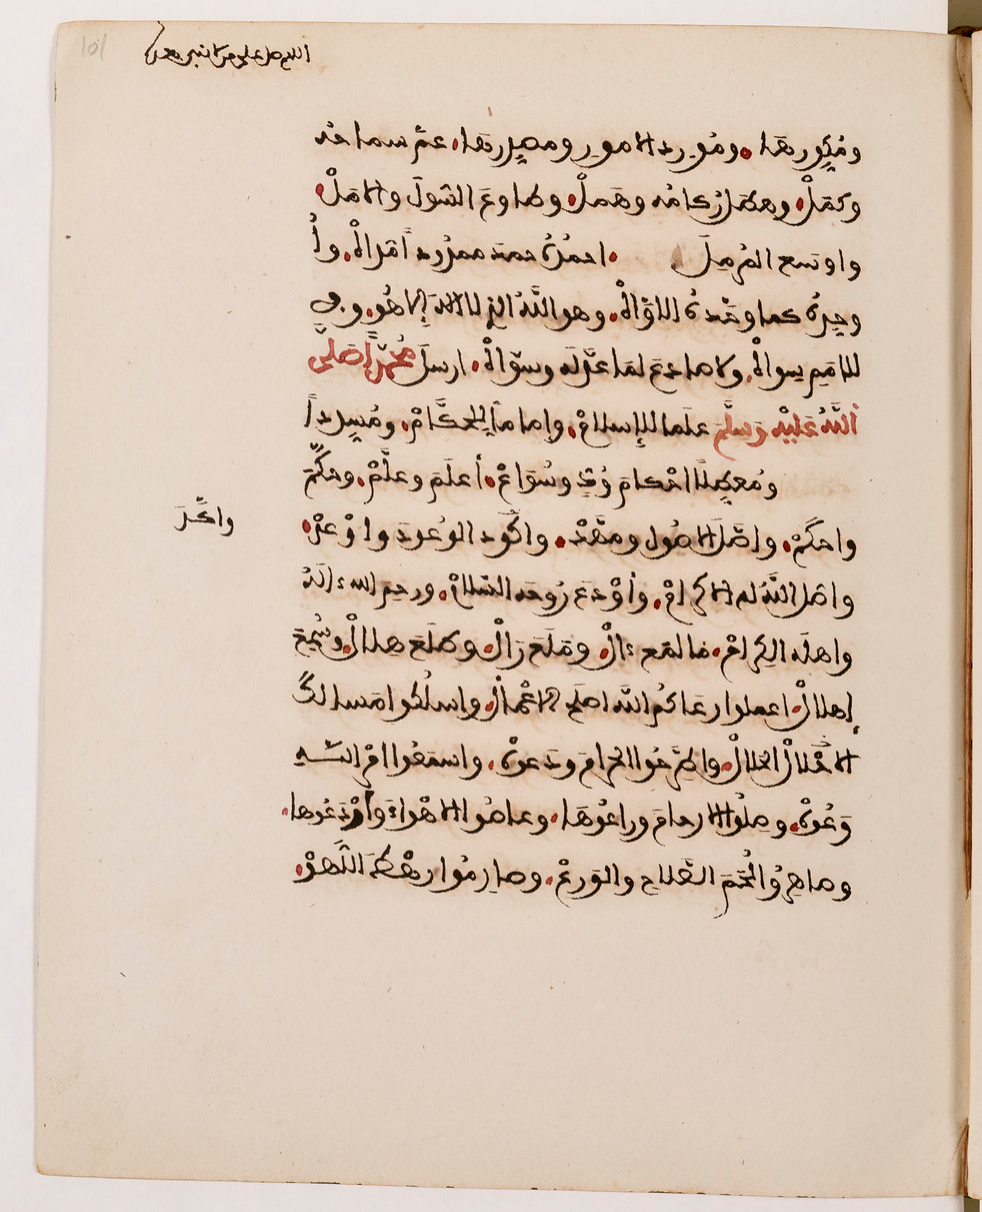 اللهم صل على من لا نبي بعده
ومكررها ومورد الامور ومصدرها عم سماحه
وكمل وهطل ركامه وهمل وطاوع السول والامل
واوسع المرمل احمده حمدا ممدودا مداه وا
وحده كما وحده الاواه وهو الله الذي لا اله الا هو و
للامم سواه ولا صادع لما عدله وسواه ارسل محمدا صلى
الله عليه وسلم علما للإسلام وإماما للحكام ومسددا
ومعطلا احكام ود وسواع أعلم وعلم وحكم
واحكم واصل الاصول ومهد واكد الوعود واوعد
واكد
واصل الله له الاكرام وأودع روحه السلام ورحم اله
واهله الكرام ما لمع ءال وملع رال وطلع هلال وسمع
إهلال اعملوا رعاكم الله اصلح الاعمال واسلكوا مسالك
الحلال واطرحوا الحرام ودعوه واسمعوا امر الله
وعوه وصلوا الارحام وراعوها وعاصوا الاهواء واردعوها
وصاهروا لحم الصلاح والورع وصارموا رهط اللهو